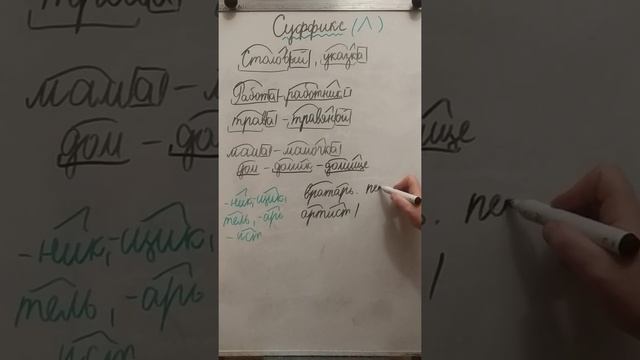 Суффикс (^)
Столовый, указка
Работа - работник
трава - травяной
мама - мамочка
дом - домик - домище
-ник, -щик,
тель, -арь
-ист
вратарь. пек
артист /